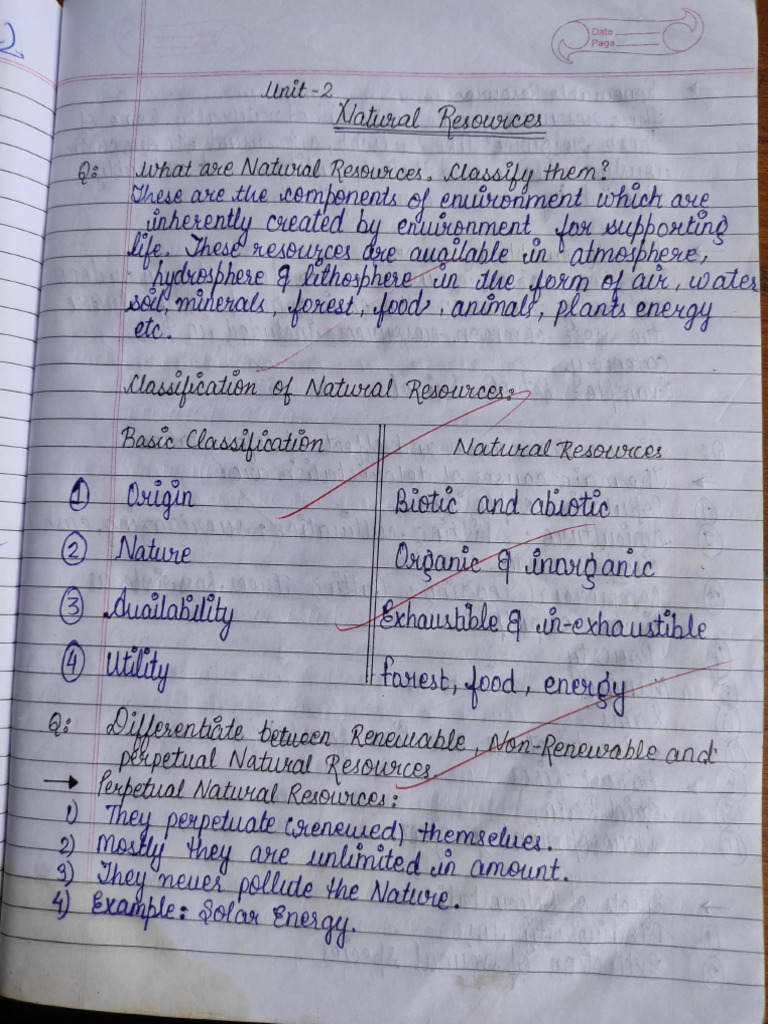 Date
Page
Unit-2
Natural Resources
Q: What are Natural Resources. Classify them?
These are the components of environment which are
inherently created by environment for supporting
life. These resources are available in atmosphere,
hydrosphere & lithosphere in the form of air, water
soil, minerals, forest, food, animals, plants energy
etc.
Classification of Natural Resources:
Basic Classification Natural Resources
① Origin Biotic and abiotic
② Nature Organic & inorganic
③ Availability Exhaustible & in-exhaustible
④ Utility forest, food, energy
Q: Differentiate between Renewable, Non-Renewable and
perpetual Natural Resources.
→ Perpetual Natural Resources:
1) They perpetuate (renewed) themselves.
2) Mostly they are unlimited in amount.
3) They never pollute the Nature.
4) Example: Solar Energy.